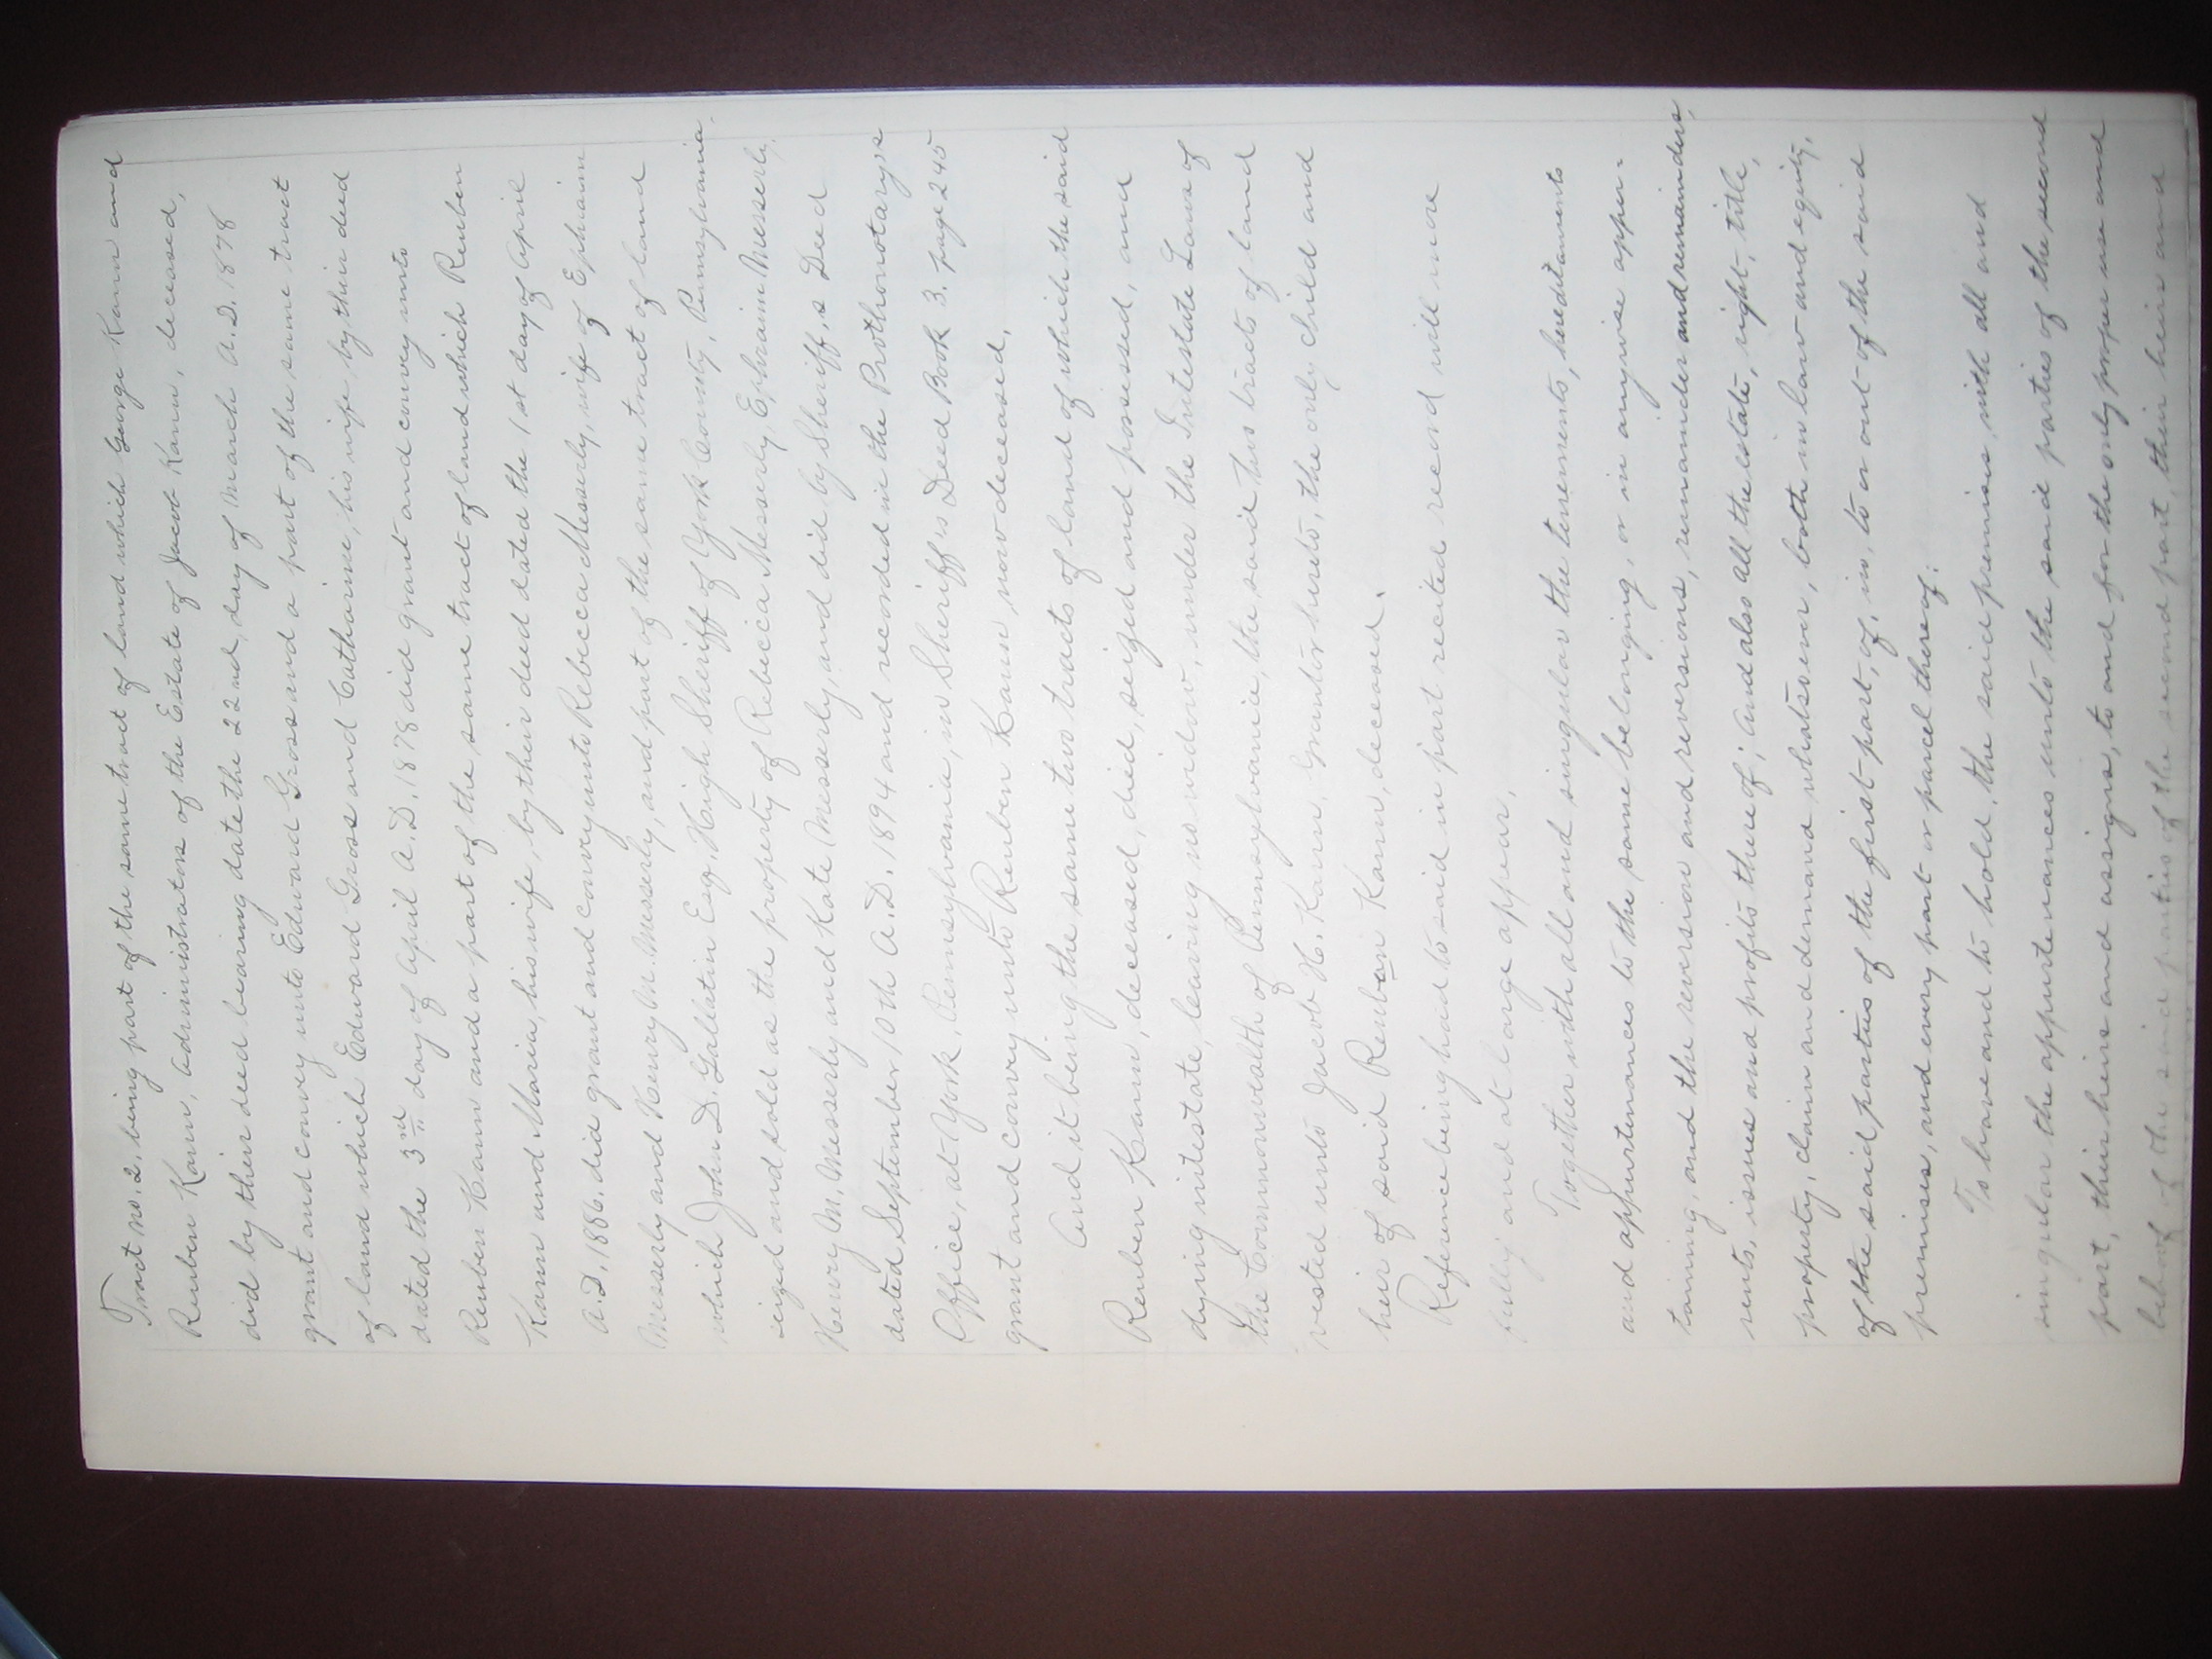 Tract no. 2, being part of the same tract of land which George Kann and
Reuben Kann, Administrators of the Estate of Jacob Kann, deceased,
did by their deed bearing date the 22nd, day of March A.D. 1878
grant and convey unto Edward Gross and a part of the same tract
of land which Edward Gross and Catharine, his wife by their deed
dated the 3rd day of April A.D. 1878 did grant and convey unto
Reuben Kann and a part of the same tract of land which Reuben
Kann and Maria, his wife, by their deed dated the 1st day of April
A.D. 1886. did grant and convey unto Rebecca Messerly, wife of Ephraim
Messerly and Henry M. Messerly, and part of the same tract of land
which John D. Gallatin Esq. High Sheriff of York County, Pennsylvania.
seized and sold as the property of Rebecca Messerly, Ephraim Messerly,
Henry M. Messerly and Kate Messerly, and did by Sheriff,s Deed
dated September 10th A.D. 1894 and recorded in the Prothonotary's
Office, at York, Pennsylvania, in Sheriff's Deed Book 3. page 245
grant and convey unto Reuben Kann, now deceased.
And it being the same two tracts of land of which the said
Reuben Kann, deceased, died, seized and possessed, and
dying intestate, leaving no widow, under the Intestate Laws of
the Commonwealth of Pennsylvania, the said two tracts of land
vested unto Jacob H. Kann, Grantor hereto, the only child and
heir of said Reuben Kann, deceased.
Reference being had to said in part recited record will more
fully and at large appear.
Together with all and singular the tenements, hereditaments
and appurtenances to the same belonging, or in anywise apper-
taining, and the reversion and reversions, remainder and remainders,
rents, issues and profits there of; And also all the estate, right, title,
property, claim and demand whatsoever, both in law and equity,
of the said parties of the first part, of, in, to or out of the said
premises, and every part or parcel thereof:
To have and to hold, the said premises, with all and
singular the appurtenances unto the said parties of the second
part, their heirs and assigns, to and for the only proper use and
behoof of the said parties of the second part, their heirs and